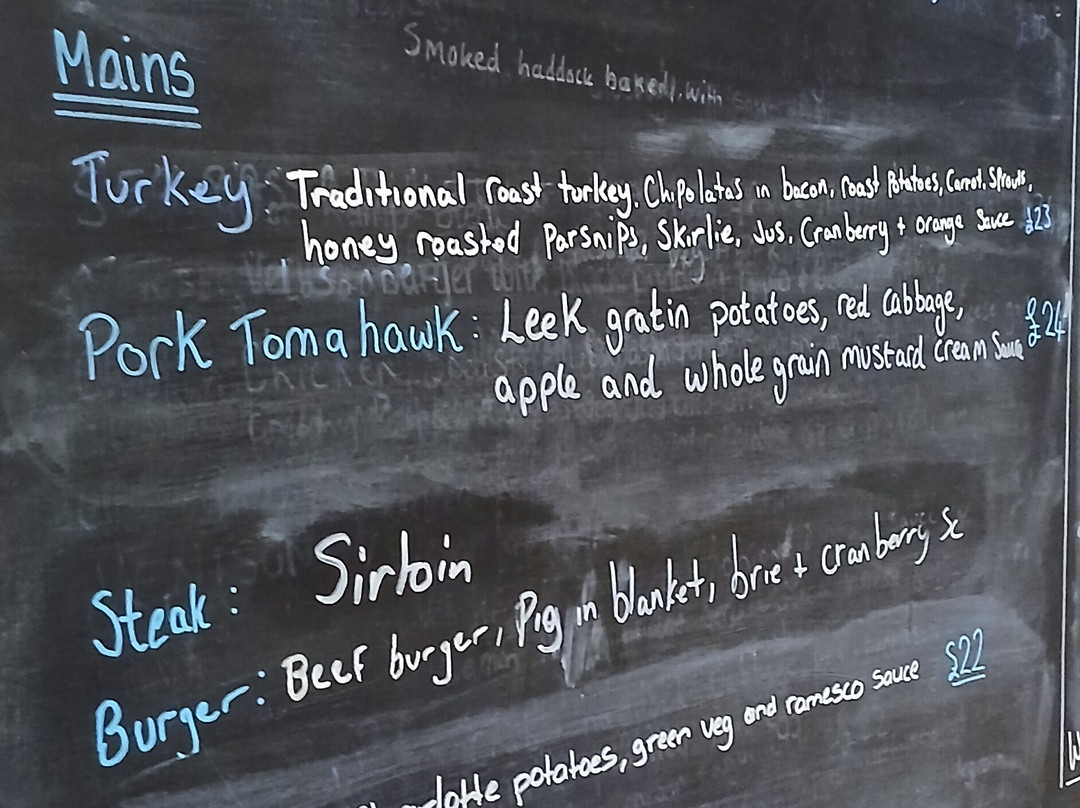 Mains
Smoked haddock baked, with
Turkey: Traditional roast turkey. Chipolatas in bacon, roast Potatoes, Carrot, Sprouts,
honey roasted Parsnips, Skirlie, Jus. Cranberry + orange Sauce £23
Pork Tomahawk: Leek gratin potatoes, red cabbage,
apple and whole grain mustard cream Sauce £24
Steak: Sirloin
Burger: Beef burger, Pig in blanket, brie + cranberry Sc
potatoes, green veg and romesco sauce £22